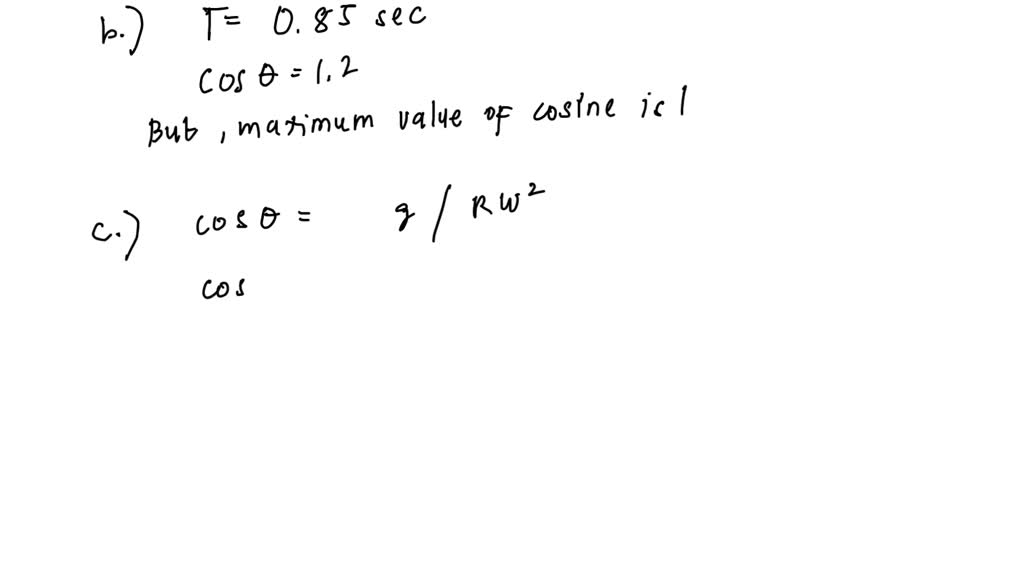 b.) T= 0.85 sec
cos θ = 1.2
But, maximum value of cosine is 1
c.) cos θ = g / RW²
cos